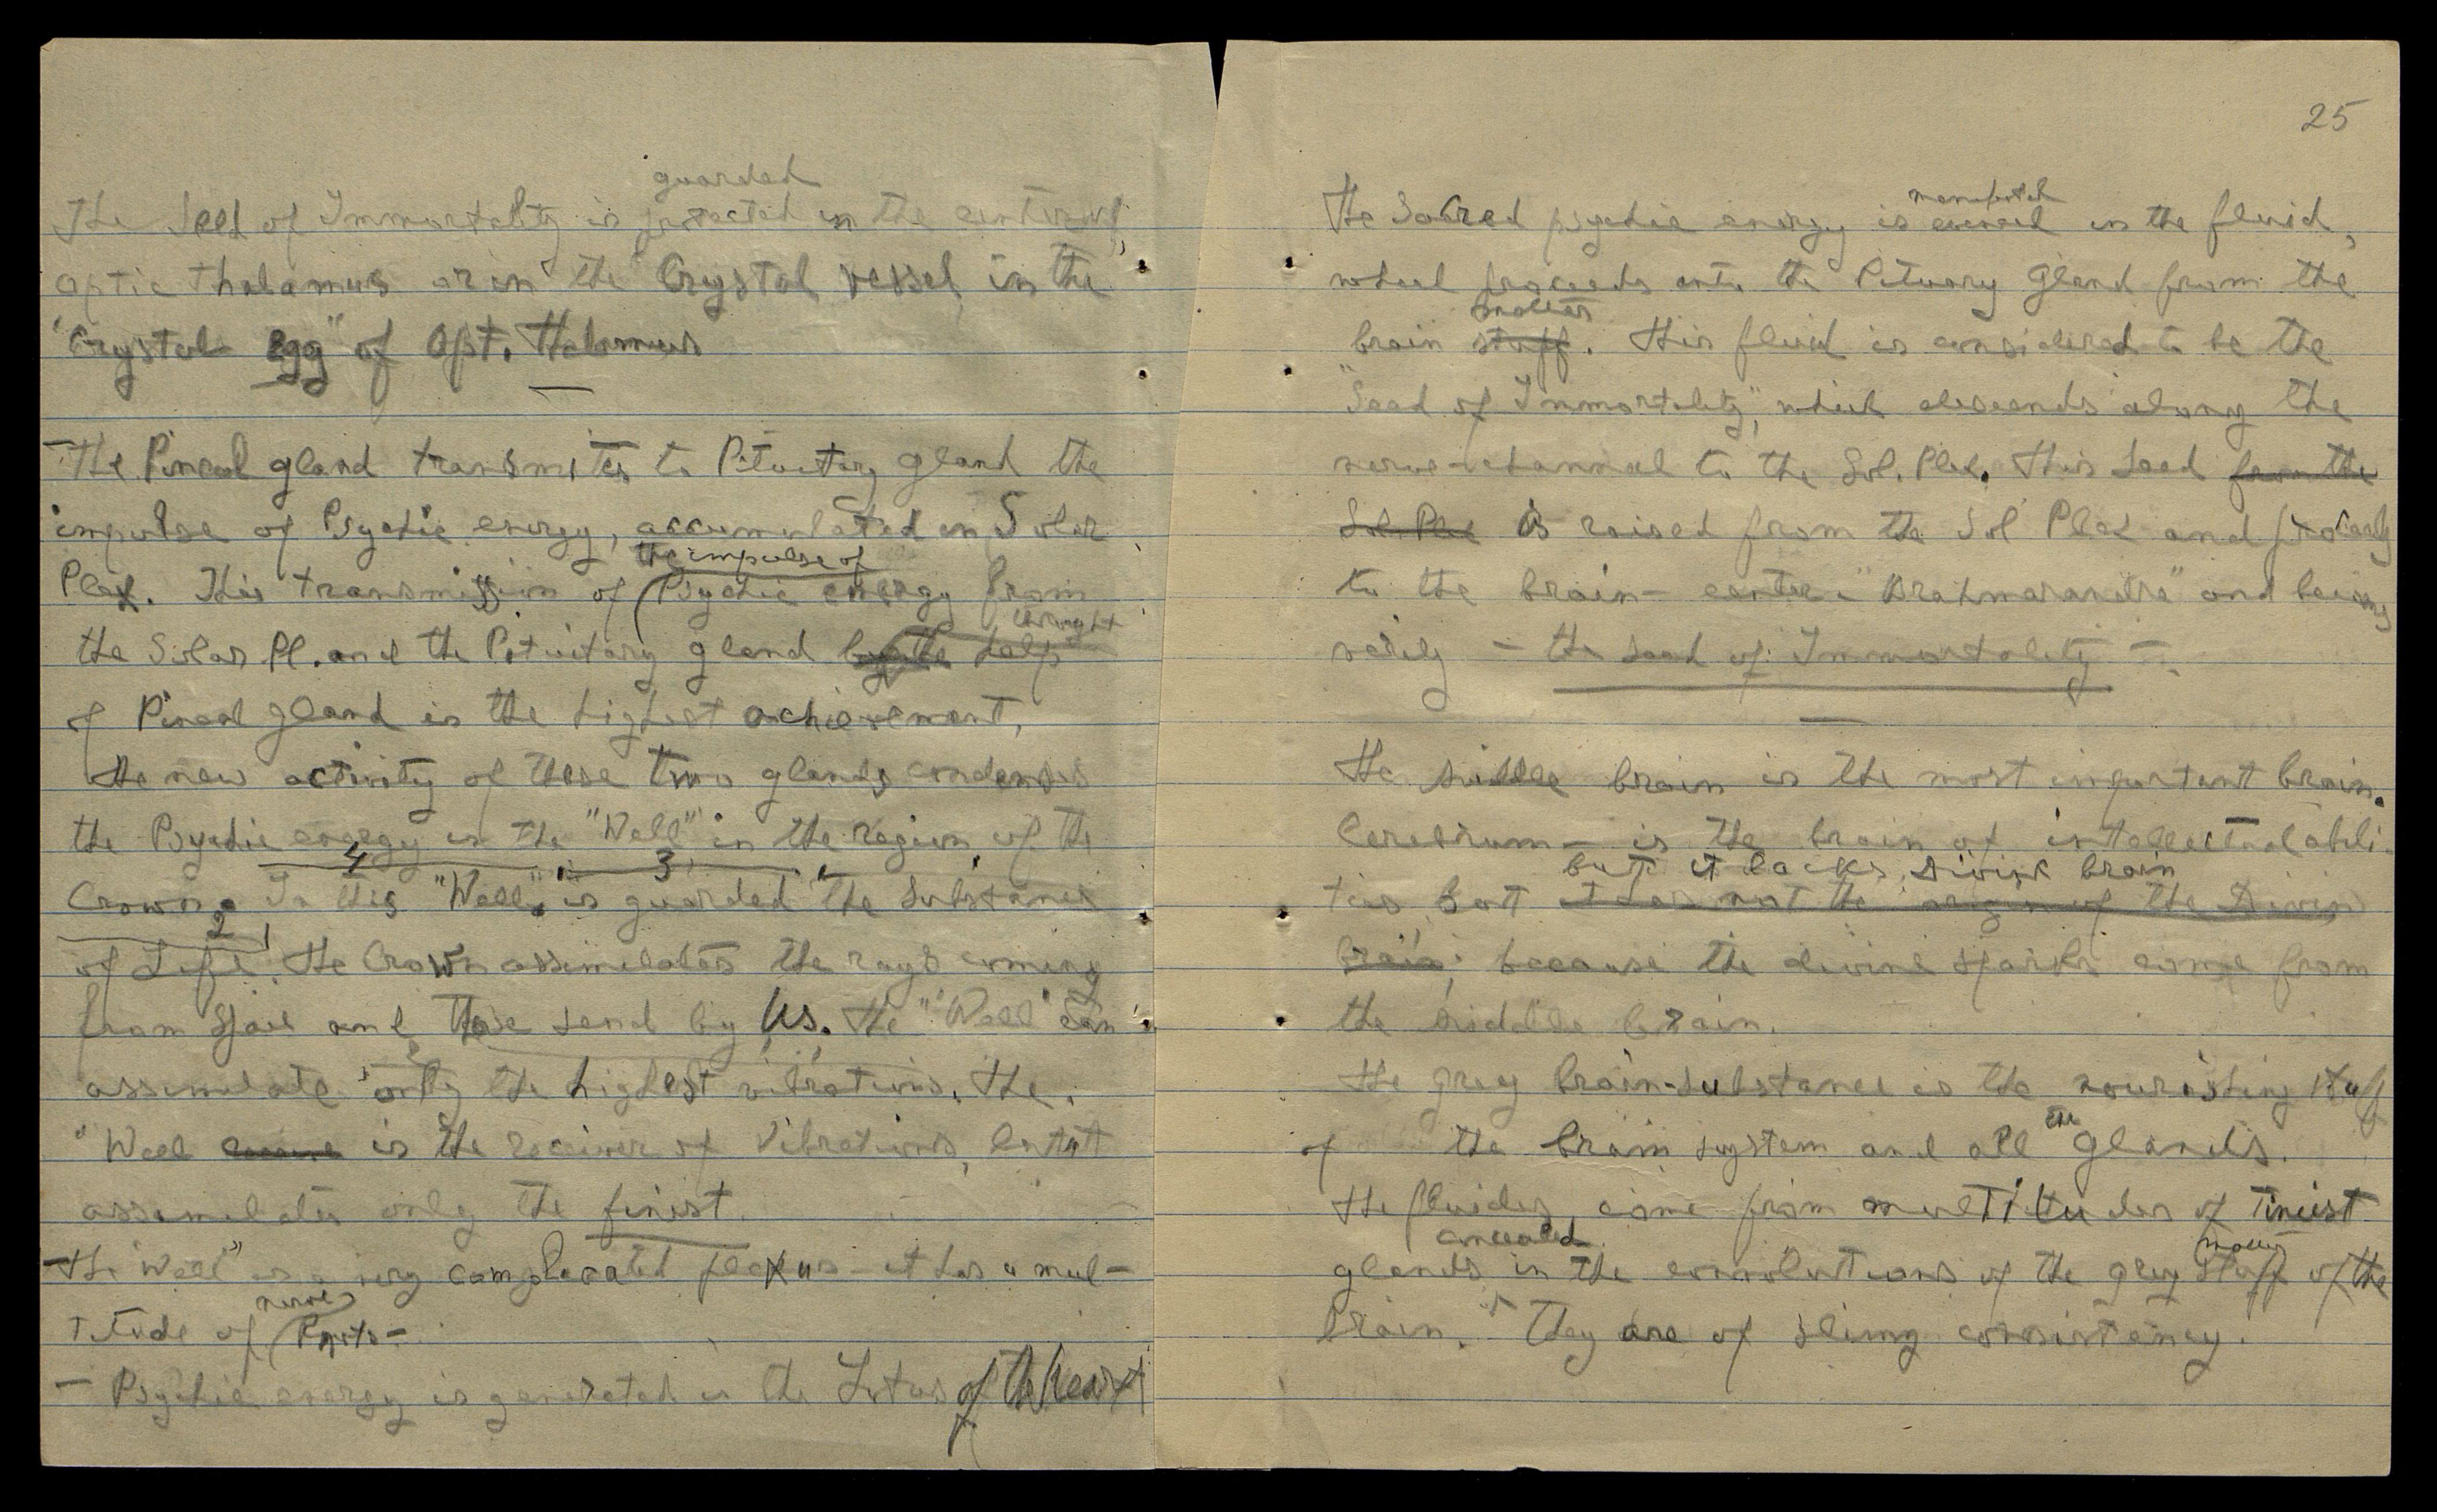 guarded
The Seed of Immortality is protected in the center of
optic thalamus or in the "Crystal vessel, in the
"Crystal Egg" of Opt. Thalamus
—
— The Pineal gland transmites to Pituitary gland the
impulse of Psychic energy, accumulated in Solar
the impulse of
Plex. This transmission of (Psychic energy from
through
the Solar Pl. and the Pituitary gland by the help
of Pineal gland is the highest achievement,
The new activity of these two glands condenses
the Psychic energy in the "Well" in the region of the
4 3
Crown. In this "Well" is guarded the substance
2 1
of Life. The Crown assimilates the rays coming
from Space and those send by Us. The "Well" can
assimilate only the highest vibrations. The
"Well is the receiver of vibrations, but it
assimilates only the finest.
The Well" is a very complicated plexus – it has a mul-
nerve
titude of (Knots –
— Psychic energy is generated in the Lotus of the heart
25
manifested
The Sacred psychic energy is in the fluid,
which proceeds into the Pituary Gland from the
matter
brain stuff. This fluid is considered to be the
"Seed of Immortality", which descends along the
nerve-channel to the Sol. Plex. This seed from the
Sol. Plex is raised from the Sol Plex and
to the brain – center – "Brahmarandra" and being
verily – the seed of Immortality –
—
The middle brain is the most important brain.
Cerebrum – is the brain of intellectual abili-
but it lacks Divine brain
ties, but it has not the origin of the Divine
brain, because the divine sparks come from
the middle brain.
The grey brain-substance is the nourishing stuff
the
of the brain system and all glands.
The fluides come from multitudes of tiniest
concealed matter
glands in the convolutions of the grey stuff of the
brain. They are of slimy consistency.